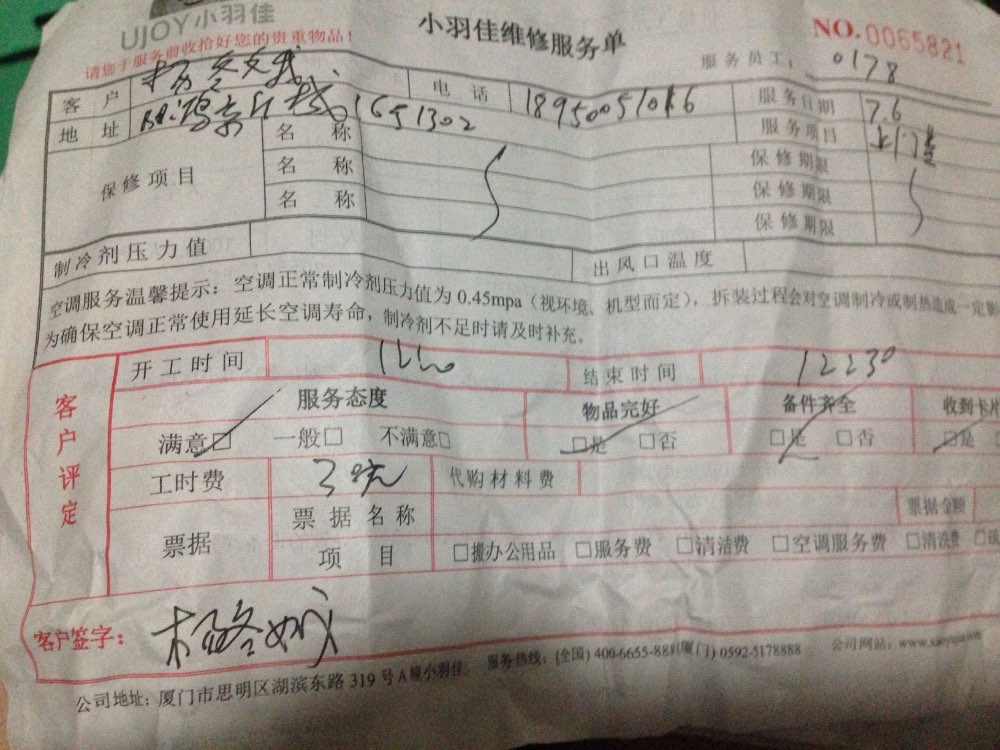 UJOY小羽佳
小羽佳维修服务单
NO.0065821
请您于服务前收拾好您的贵重物品!
服务员工: 0178
客户 电话 18950051016 服务日期 7.6
地址 1651302 服务项目 上门
保修项目 名称 保修期限
名称 保修期限
名称 保修期限
制冷剂压力值 出风口温度
空调服务温馨提示：空调正常制冷剂压力值为 0.45mpa（视环境、机型而定），拆装过程会对空调制冷或制热造成一定
为确保空调正常使用延长空调寿命，制冷剂不足时请及时补充。
客户评定
开工时间 结束时间 12:30
服务态度 物品完好 备件齐全 收到卡片
满意□ 一般□ 不满意□ □是 □否 □是 □否 □是
工时费 30元 代购材料费
票据 票据名称 票据金额
项目 □搬办公用品 □服务费 □清洁费 □空调服务费 □清洗费
客户签字：
公司地址：厦门市思明区湖滨东路 319 号A幢小羽佳 服务热线：(全国) 400-6655-88 (厦门) 0592-5178888 公司网站：www.